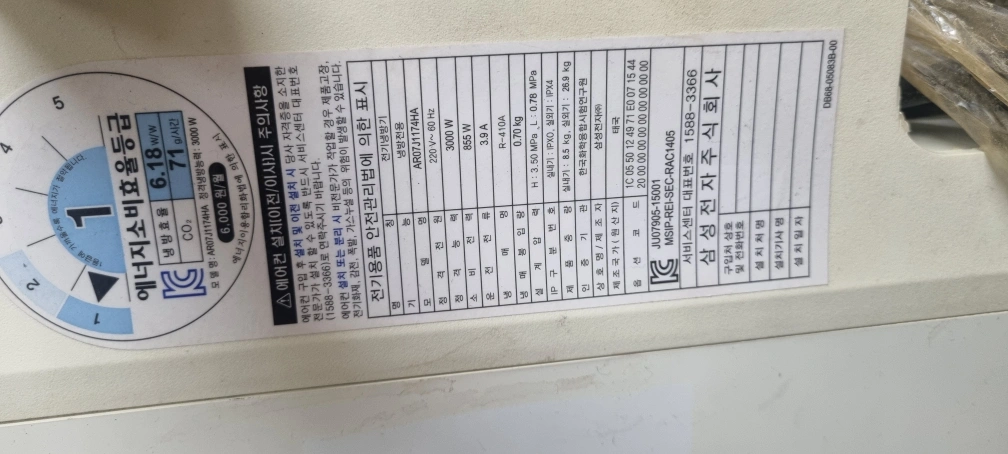 5
4
2
1
1
에너지소비효율등급
냉방효율 6.18 W/W
CO₂ 71 g/시간
모델명:AR07J1174HA 정격냉방능력: 3000 W
6,000 원/월
에너지이용합리화법에 의한 표시
⚠ 에어컨 설치(이전/이사)시 주의사항
에어컨 구입 후 설치 및 이전 설치 시 당사 자격증을 소지한
전문가가 설치 할 수 있도록 반드시 서비스센터 대표번호
(1588-3366)로 연락주시기 바랍니다.
에어컨 설치 또는 분리 시 비전문가가 작업할 경우 제품고장,
전기화재, 감전, 폭발, 가스누설 등의 위험이 발생할 수 있습니다.
전기용품 안전관리법에 의한 표시
명 칭 전기냉방기
기 능 냉방전용
모 델 명 AR07J1174HA
정 격 전 원 220 V~ 60 Hz
정 격 능 력 3000 W
소 비 전 력 855 W
운 전 전 류 3.9 A
냉 매 명 R-410A
냉 매 봉 입 량 0.70 kg
설 계 압 력 H : 3.50 MPa , L : 0.78 MPa
IP 구 분 번 호 실내기 : IPX0, 실외기 : IPX4
제 품 중 량 실내기 : 8.5 kg, 실외기 : 26.9 kg
인 증 기 관 한국화학융합시험연구원
상 호 명 / 제 조 자 삼성전자㈜
제 조 국 가 ( 원 산 지 ) 태국
옵 션 코 드 1C 05 50 12 49 71 E0 07 15 44
20 00 00 00 00 00 00 00 00 00
JU07905-15001
MSIP-REI-SEC-RAC1405
서비스센터 대표번호 1588-3366
삼성전자주식회사
구입처 상호
및 전화번호
설 치 처 명
설치기사 명
설 치 일 자
DB68-05083B-00